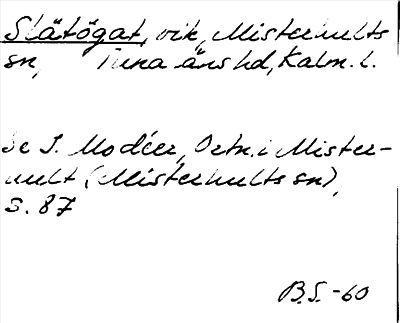 Slätögat, vik, Misterhults
sn, Tuna läns hd, Kalm. l.
Se I. Modéer, Ortn. i Mister-
hult (Misterhults sn),
S. 87
B.S. -60